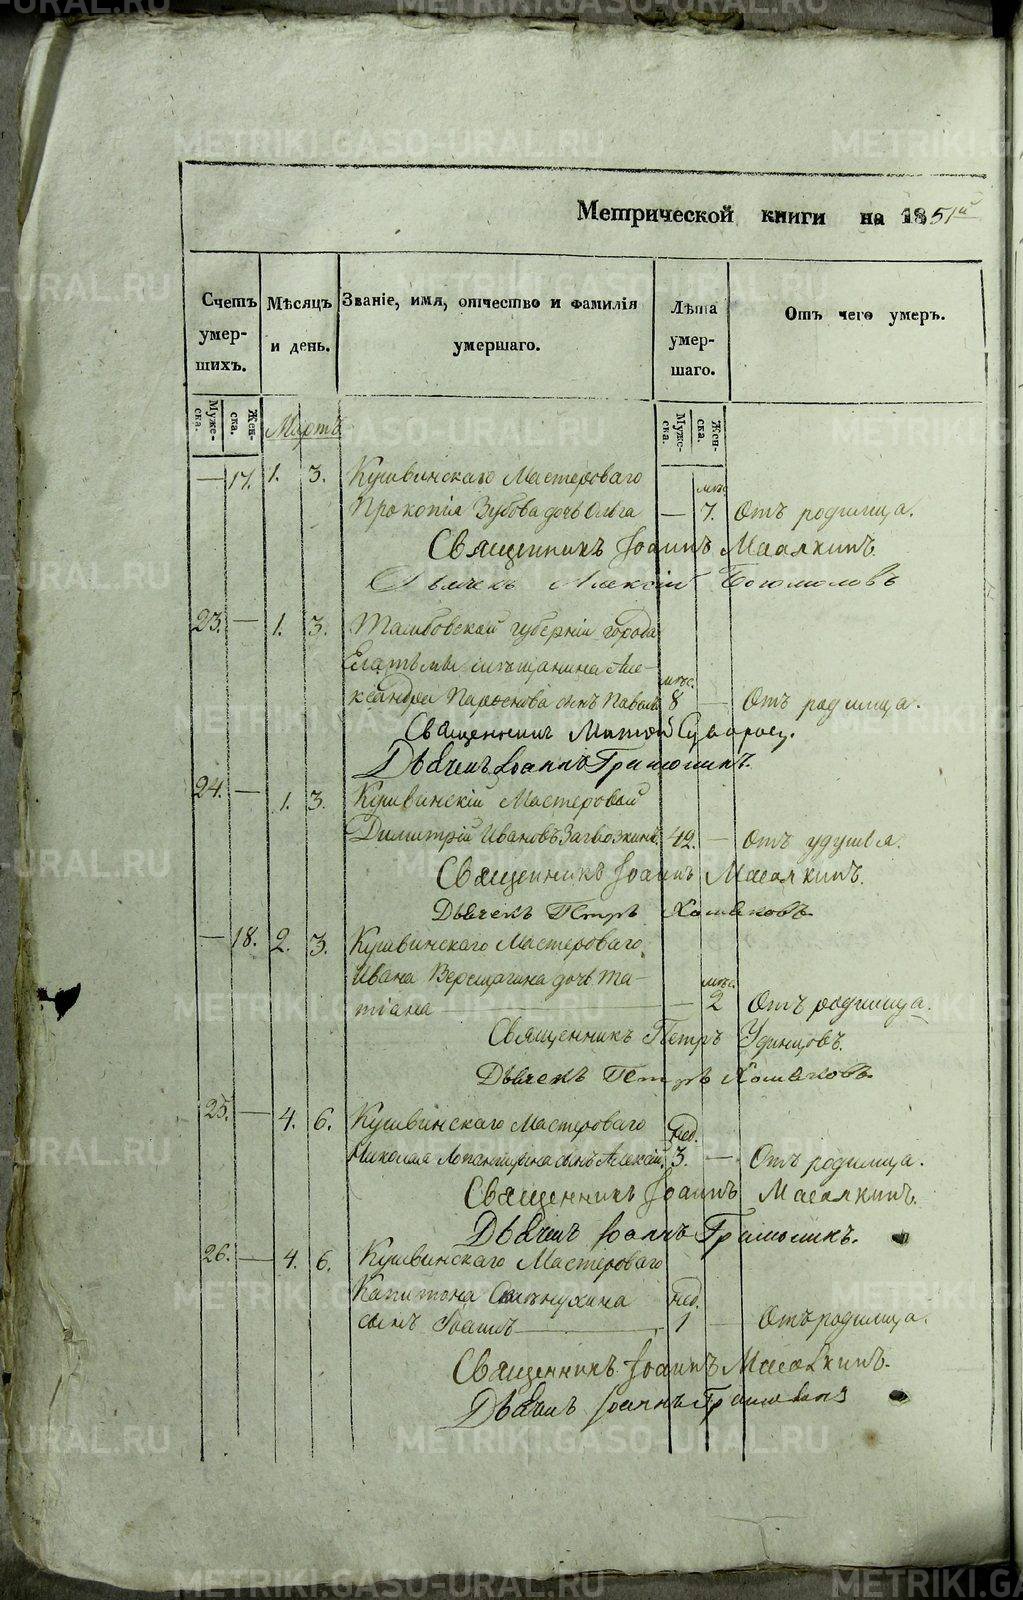 Метрической книги на 1851й
Счетъ умер- шихъ.
Мѣсяцъ и день.
Званіе, имя, отчество и фамилія умершаго.
Лѣта умер- шаго.
Отъ чего умеръ.
Муже- ска.
Жен- ска.
Мартъ
Муже- ска.
Жен- ска.
— 17. 1. 3. Кушвинскаго Мастероваго
Прокопія Зубова дочь Ольга — мѣс. 7. Отъ родимца.
Священникъ Іоаннъ Масалкинъ
Дьячекъ Алексій Богомоловъ
23. — 1. 3. Тамбовской губерніи города
Елатьмы мѣщанина Але-
ксандра Парѳенова сынъ Павелъ мѣс. 8 — Отъ родимца.
Священникъ
Дьячекъ Іоаннъ
24. — 1. 3. Кушвинскій Мастеровой
Димитрій Ивановъ Загвозкинъ. 42. — Отъ удушья.
Священникъ Іоаннъ Масалкинъ.
Дьячекъ Петръ Хомяковъ
— 18. 2. 3. Кушвинскаго Мастероваго
Ивана Верещагина дочь Та-
тіана — мѣс. 2 Отъ родимца.
Священникъ Петръ Удинцовъ.
Дьячекъ Петръ Хомяковъ
25. — 4. 6. Кушвинскаго Мастероваго
Николая сынъ Алексій. нед. 3. — Отъ родимца.
Священникъ Іоаннъ Масалкинъ.
Дьячекъ Іоаннъ
26. — 4. 6. Кушвинскаго Мастероваго
Капитона
сынъ нед. 1 — Отъ родимца.
Священникъ Іоаннъ Масалкинъ.
Дьячекъ Іоаннъ
METRIKI.GASO-URAL.RU